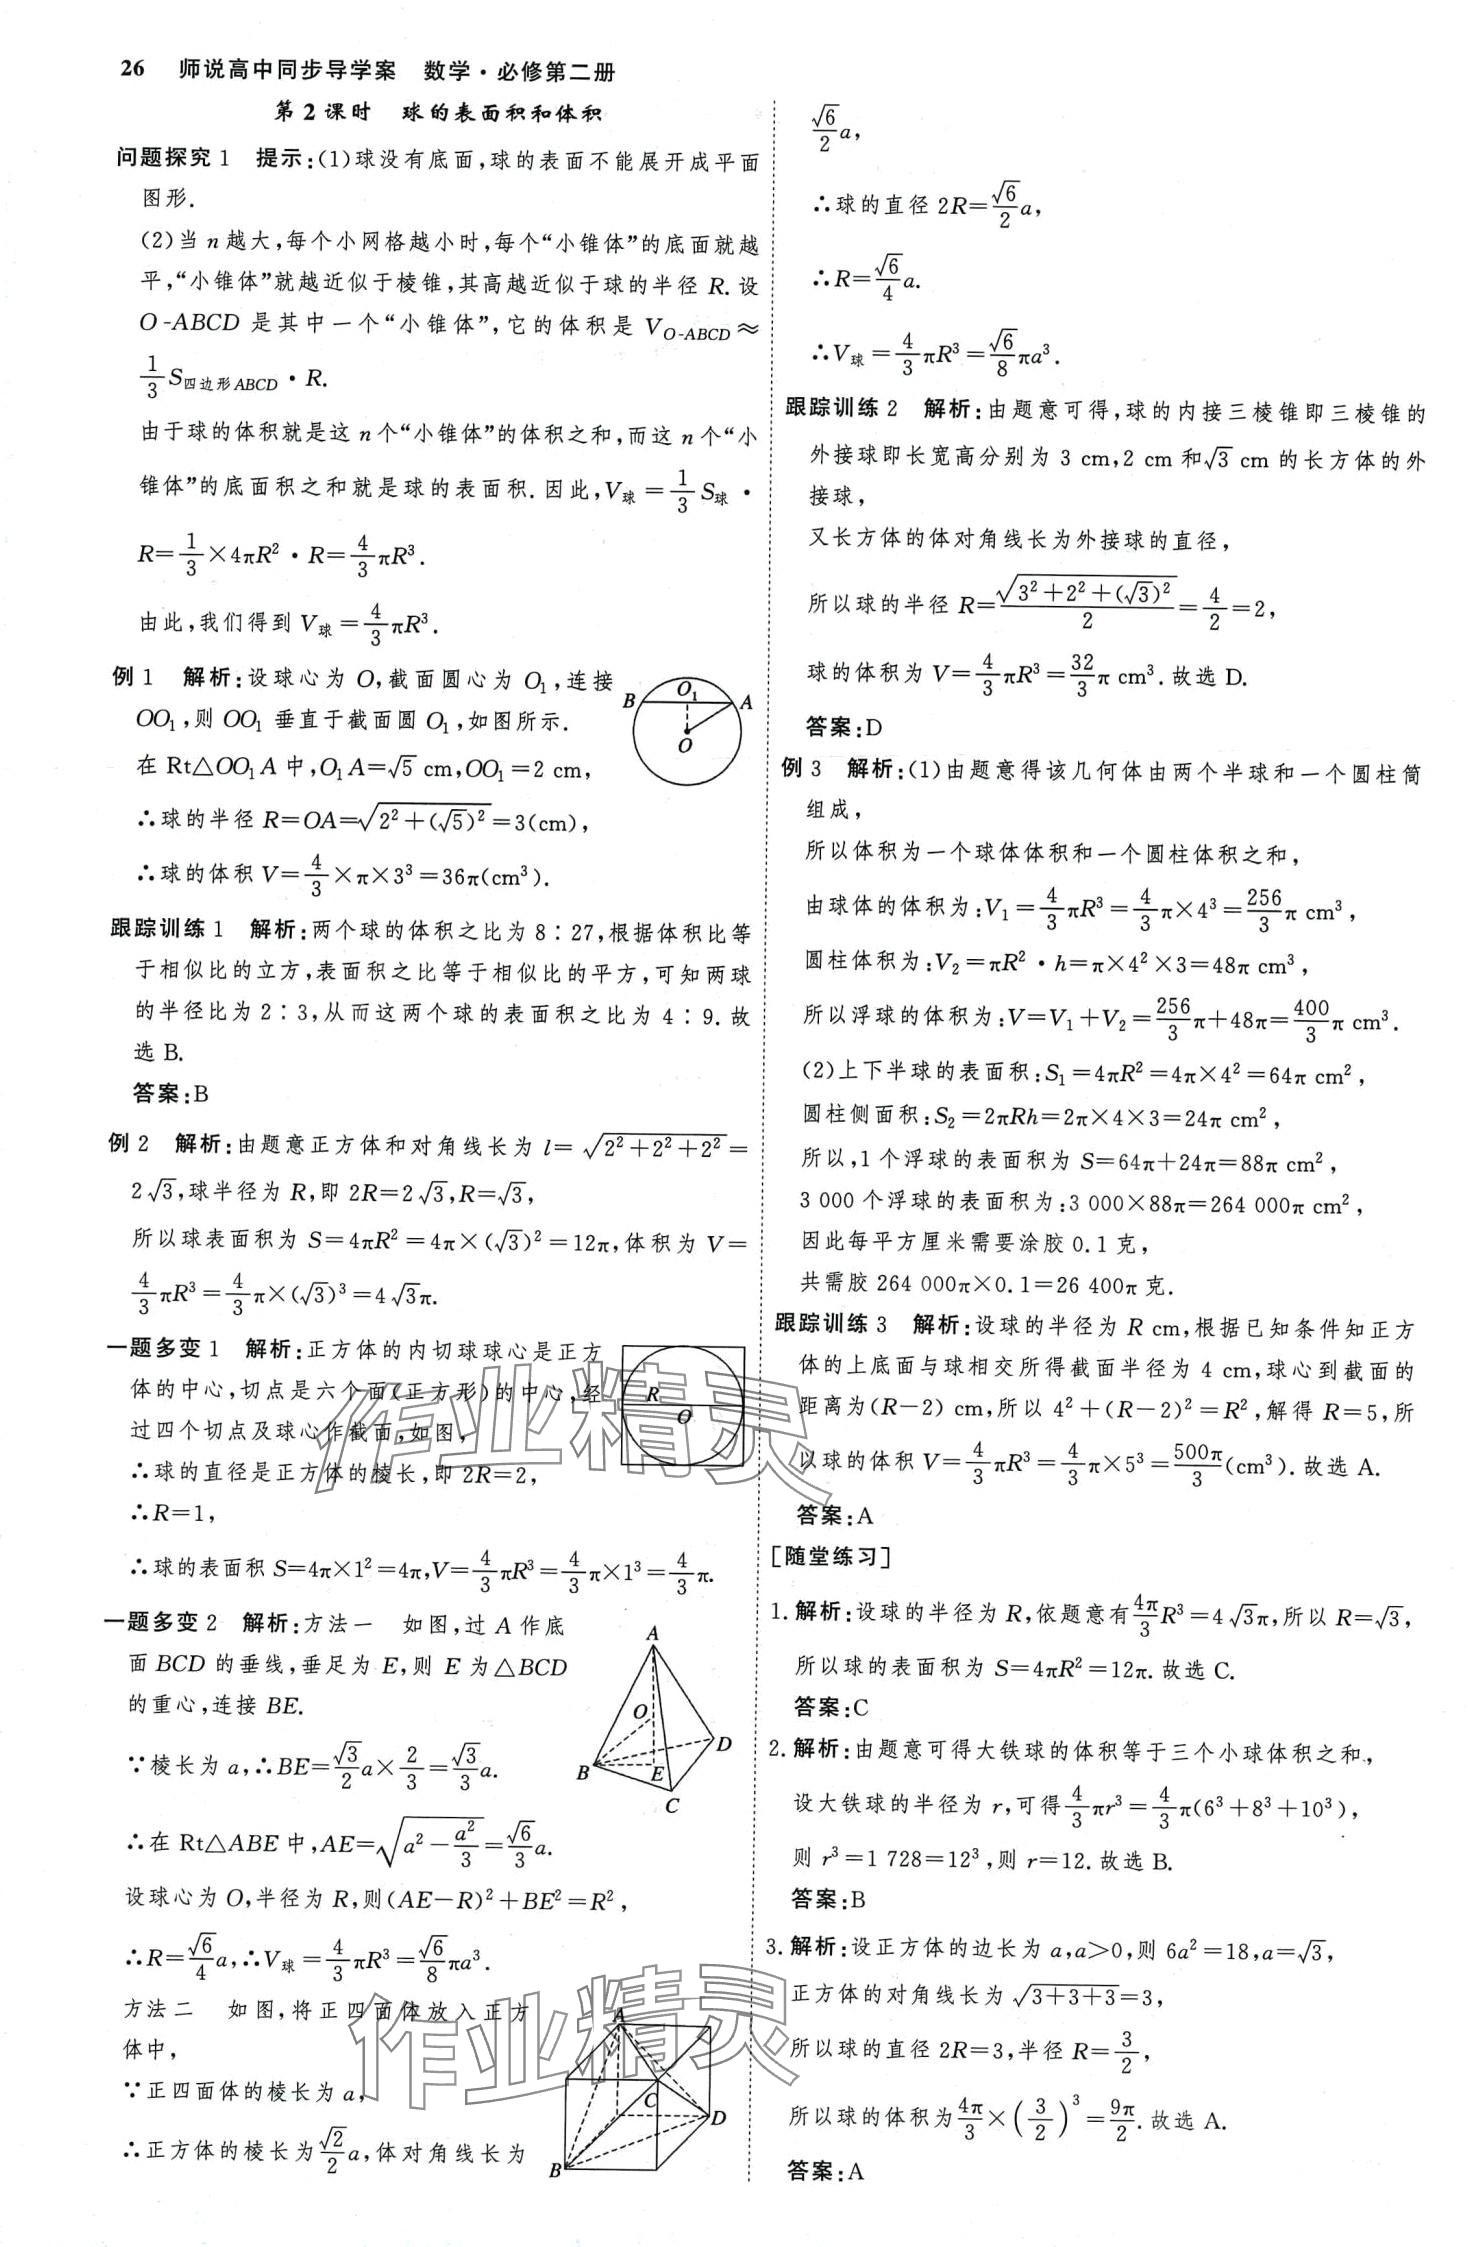 26 师说高中同步导学案 数学·必修第二册
第2课时 球的表面积和体积
问题探究1 提示:(1)球没有底面,球的表面不能展开成平面
图形.
(2)当 n 越大,每个小网格越小时,每个“小锥体”的底面就越
平,“小锥体”就越近似于棱锥,其高越近似于球的半径 R. 设
O-ABCD 是其中一个“小锥体”,它的体积是 V_{O-ABCD}≈
\frac{1}{3}S_{四边形ABCD}·R.
由于球的体积就是这 n 个“小锥体”的体积之和,而这 n 个“小
锥体”的底面积之和就是球的表面积. 因此,V_球=\frac{1}{3}S_球·
R=\frac{1}{3}×4πR²·R=\frac{4}{3}πR³.
由此,我们得到 V_球=\frac{4}{3}πR³.
例1 解析:设球心为 O,截面圆心为 O₁,连接
OO₁,则 OO₁ 垂直于截面圆 O₁,如图所示.
在 Rt△OO₁A 中,O₁A=√5 cm,OO₁=2 cm,
∴球的半径 R=OA=√(2²+(√5)²)=3(cm),
∴球的体积 V=\frac{4}{3}×π×3³=36π(cm³).
B O₁ A
O
跟踪训练1 解析:两个球的体积之比为 8∶27,根据体积比等
于相似比的立方,表面积之比等于相似比的平方,可知两球
的半径比为 2∶3,从而这两个球的表面积之比为 4∶9. 故
选 B.
答案:B
例2 解析:由题意正方体和对角线长为 l=√(2²+2²+2²)=
2√3,球半径为 R,即 2R=2√3,R=√3,
所以球表面积为 S=4πR²=4π×(√3)²=12π,体积为 V=
\frac{4}{3}πR³=\frac{4}{3}π×(√3)³=4√3π.
一题多变1 解析:正方体的内切球球心是正方
体的中心,切点是六个面(正方形)的中心,经
过四个切点及球心作截面,如图,
∴球的直径是正方体的棱长,即 2R=2,
∴R=1,
∴球的表面积 S=4π×1²=4π,V=\frac{4}{3}πR³=\frac{4}{3}π×1³=\frac{4}{3}π.
R
O
一题多变2 解析:方法一 如图,过 A 作底
面 BCD 的垂线,垂足为 E,则 E 为△BCD
的重心,连接 BE.
∵棱长为 a,∴BE=\frac{√3}{2}a×\frac{2}{3}=\frac{√3}{3}a.
∴在 Rt△ABE 中,AE=√(a²-\frac{a²}{3})=\frac{√6}{3}a.
设球心为 O,半径为 R,则(AE-R)²+BE²=R²,
∴R=\frac{√6}{4}a,∴V_球=\frac{4}{3}πR³=\frac{√6}{8}πa³.
A
O
D
B E
C
方法二 如图,将正四面体放入正方
体中,
∵正四面体的棱长为 a,
∴正方体的棱长为\frac{√2}{2}a,体对角线长为
A
C
D
B
\frac{√6}{2}a,
∴球的直径 2R=\frac{√6}{2}a,
∴R=\frac{√6}{4}a.
∴V_球=\frac{4}{3}πR³=\frac{√6}{8}πa³.
跟踪训练2 解析:由题意可得,球的内接三棱锥即三棱锥的
外接球即长宽高分别为 3 cm,2 cm 和√3 cm 的长方体的外
接球,
又长方体的体对角线长为外接球的直径,
所以球的半径 R=\frac{√(3²+2²+(√3)²)}{2}=\frac{4}{2}=2,
球的体积为 V=\frac{4}{3}πR³=\frac{32}{3}π cm³. 故选 D.
答案:D
例3 解析:(1)由题意得该几何体由两个半球和一个圆柱筒
组成,
所以体积为一个球体体积和一个圆柱体积之和,
由球体的体积为:V₁=\frac{4}{3}πR³=\frac{4}{3}π×4³=\frac{256}{3}π cm³,
圆柱体积为:V₂=πR²·h=π×4²×3=48π cm³,
所以浮球的体积为:V=V₁+V₂=\frac{256}{3}π+48π=\frac{400}{3}π cm³.
(2)上下半球的表面积:S₁=4πR²=4π×4²=64π cm²,
圆柱侧面积:S₂=2πRh=2π×4×3=24π cm²,
所以,1 个浮球的表面积为 S=64π+24π=88π cm²,
3 000 个浮球的表面积为:3 000×88π=264 000π cm²,
因此每平方厘米需要涂胶 0.1 克,
共需胶 264 000π×0.1=26 400π 克.
跟踪训练3 解析:设球的半径为 R cm,根据已知条件知正方
体的上底面与球相交所得截面半径为 4 cm,球心到截面的
距离为(R-2) cm,所以 4²+(R-2)²=R²,解得 R=5,所
以球的体积 V=\frac{4}{3}πR³=\frac{4}{3}π×5³=\frac{500π}{3}(cm³). 故选 A.
答案:A
[随堂练习]
1. 解析:设球的半径为 R,依题意有\frac{4π}{3}R³=4√3π,所以 R=√3,
所以球的表面积为 S=4πR²=12π. 故选 C.
答案:C
2. 解析:由题意可得大铁球的体积等于三个小球体积之和,
设大铁球的半径为 r,可得\frac{4}{3}πr³=\frac{4}{3}π(6³+8³+10³),
则 r³=1 728=12³,则 r=12. 故选 B.
答案:B
3. 解析:设正方体的边长为 a,a>0,则 6a²=18,a=√3,
正方体的对角线长为 √(3+3+3)=3,
所以球的直径 2R=3,半径 R=\frac{3}{2},
所以球的体积为\frac{4π}{3}×(\frac{3}{2})³=\frac{9π}{2}. 故选 A.
答案:A
作业精灵
作业精灵